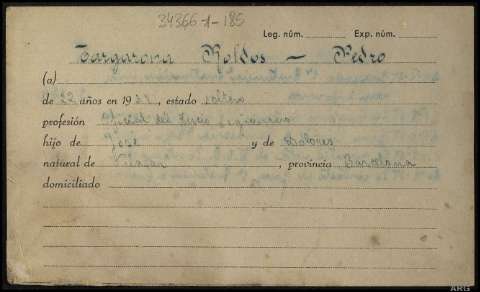 34366-1-185
Leg. núm. Exp. núm.
Targarona Roldos — Pedro
(a)
de 22 años en 193 , estado soltero
profesión Oficial del Tercio
hijo de Jose y de Dolores
natural de , provincia Barcelona
domiciliado
ARG